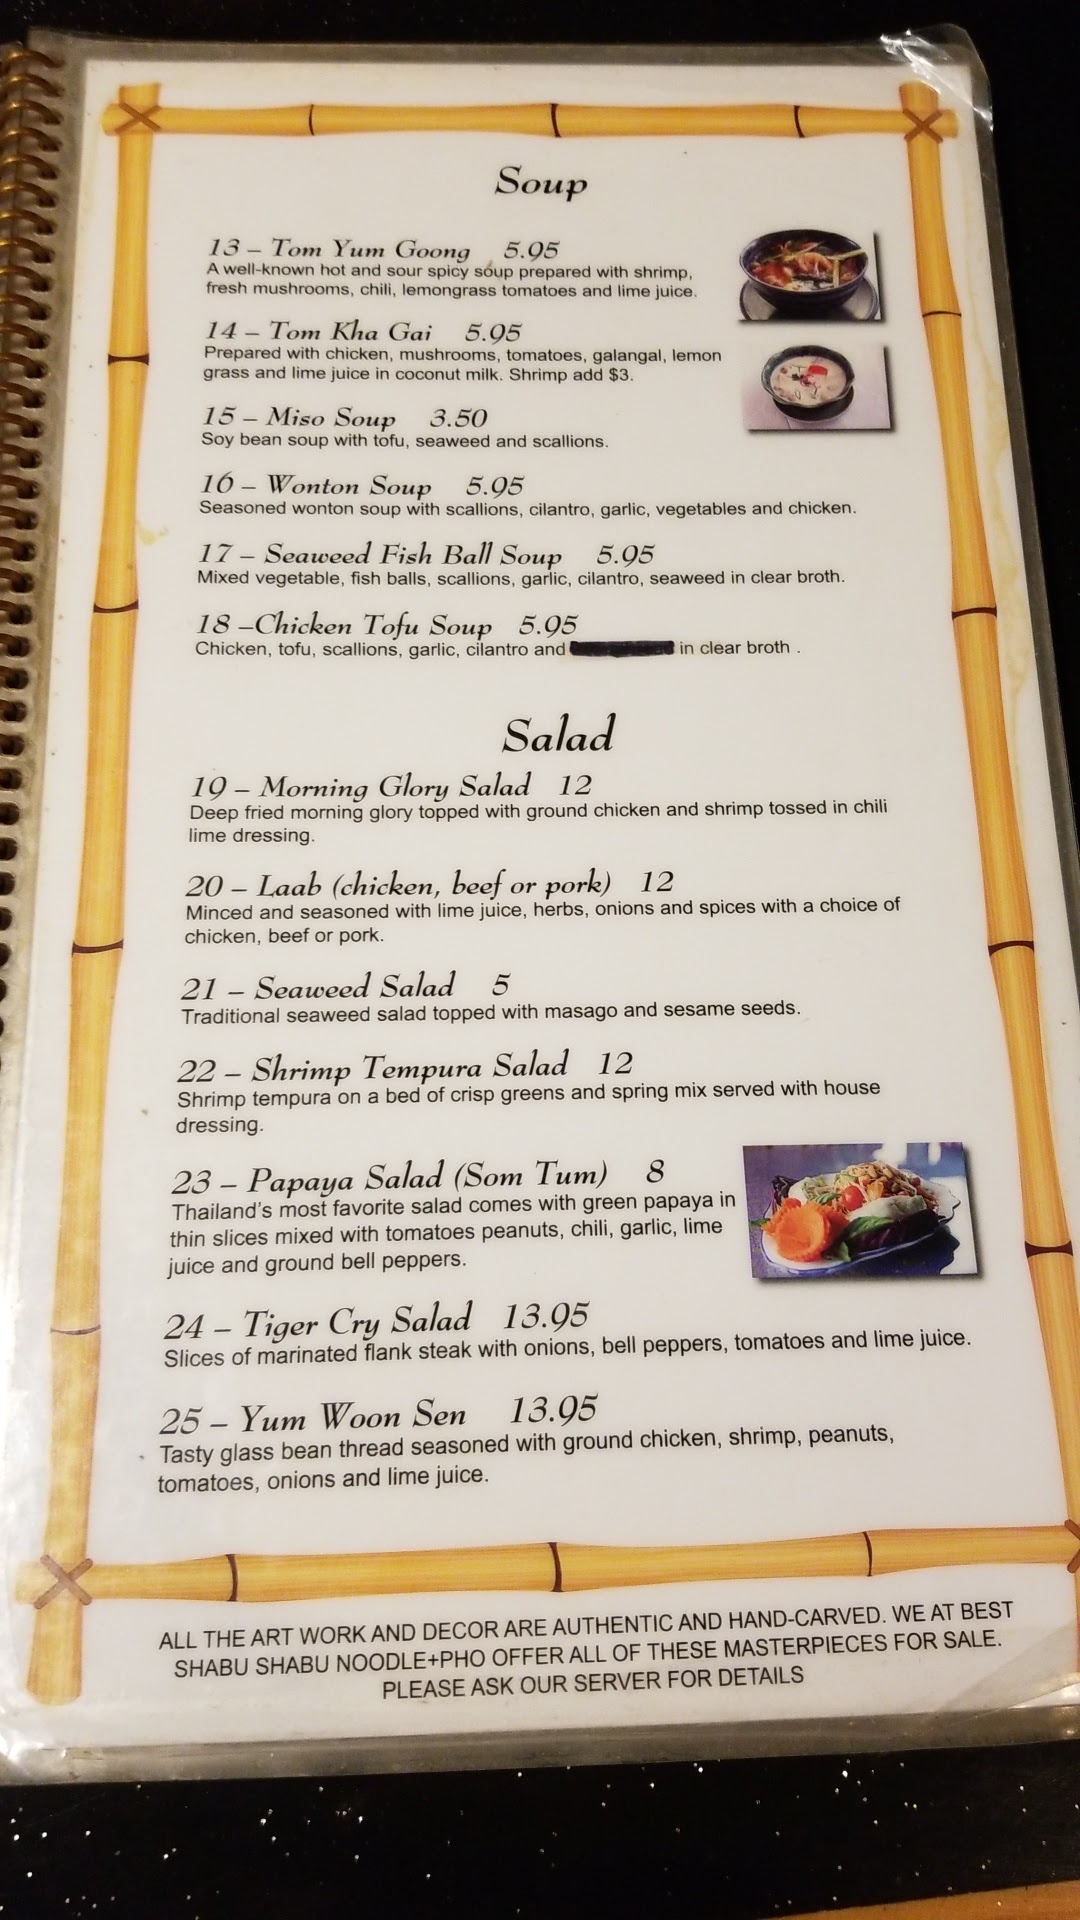 Soup
13 – Tom Yum Goong 5.95
A well-known hot and sour spicy soup prepared with shrimp,
fresh mushrooms, chili, lemongrass tomatoes and lime juice.
14 – Tom Kha Gai 5.95
Prepared with chicken, mushrooms, tomatoes, galangal, lemon
grass and lime juice in coconut milk. Shrimp add $3.
15 – Miso Soup 3.50
Soy bean soup with tofu, seaweed and scallions.
16 – Wonton Soup 5.95
Seasoned wonton soup with scallions, cilantro, garlic, vegetables and chicken.
17 – Seaweed Fish Ball Soup 5.95
Mixed vegetable, fish balls, scallions, garlic, cilantro, seaweed in clear broth.
18 –Chicken Tofu Soup 5.95
Chicken, tofu, scallions, garlic, cilantro and in clear broth .
Salad
19 – Morning Glory Salad 12
Deep fried morning glory topped with ground chicken and shrimp tossed in chili
lime dressing.
20 – Laab (chicken, beef or pork) 12
Minced and seasoned with lime juice, herbs, onions and spices with a choice of
chicken, beef or pork.
21 – Seaweed Salad 5
Traditional seaweed salad topped with masago and sesame seeds.
22 – Shrimp Tempura Salad 12
Shrimp tempura on a bed of crisp greens and spring mix served with house
dressing.
23 – Papaya Salad (Som Tum) 8
Thailand's most favorite salad comes with green papaya in
thin slices mixed with tomatoes peanuts, chili, garlic, lime
juice and ground bell peppers.
24 – Tiger Cry Salad 13.95
Slices of marinated flank steak with onions, bell peppers, tomatoes and lime juice.
25 – Yum Woon Sen 13.95
Tasty glass bean thread seasoned with ground chicken, shrimp, peanuts,
tomatoes, onions and lime juice.
ALL THE ART WORK AND DECOR ARE AUTHENTIC AND HAND-CARVED. WE AT BEST
SHABU SHABU NOODLE+PHO OFFER ALL OF THESE MASTERPIECES FOR SALE.
PLEASE ASK OUR SERVER FOR DETAILS